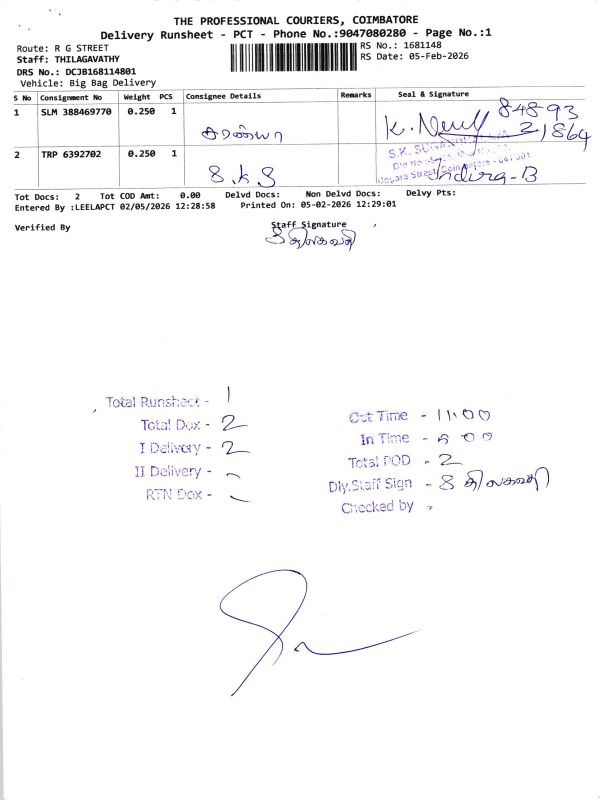 THE PROFESSIONAL COURIERS, COIMBATORE
Delivery Runsheet - PCT - Phone No.:9047080280 - Page No.:1
Route: R G STREET
RS No.: 1681148
Staff: THILAGAVATHY
RS Date: 05-Feb-2026
DRS No.: DCJB168114801
Vehicle: Big Bag Delivery
S No Consignment No Weight PCS Consignee Details Remarks Seal & Signature
1 SLM 388469770 0.250 1 சரண்யா 848-93 21864
2 TRP 6392702 0.250 1 S.K.S Indira-B
Tot Docs: 2 Tot COD Amt: 0.00 Delvd Docs: Non Delvd Docs: Delvy Pts:
Entered By :LEELAPCT 02/05/2026 12:28:58 Printed On: 05-02-2026 12:29:01
Verified By
Staff Signature
திலகவதி
Total Runsheet - 1
Total Dox - 2
I Delivery - 2
II Delivery -
RTN Dox -
Out Time - 11:00
In Time - 5 00
Total POD - 2
Dly.Staff Sign - திலகவதி
Checked by